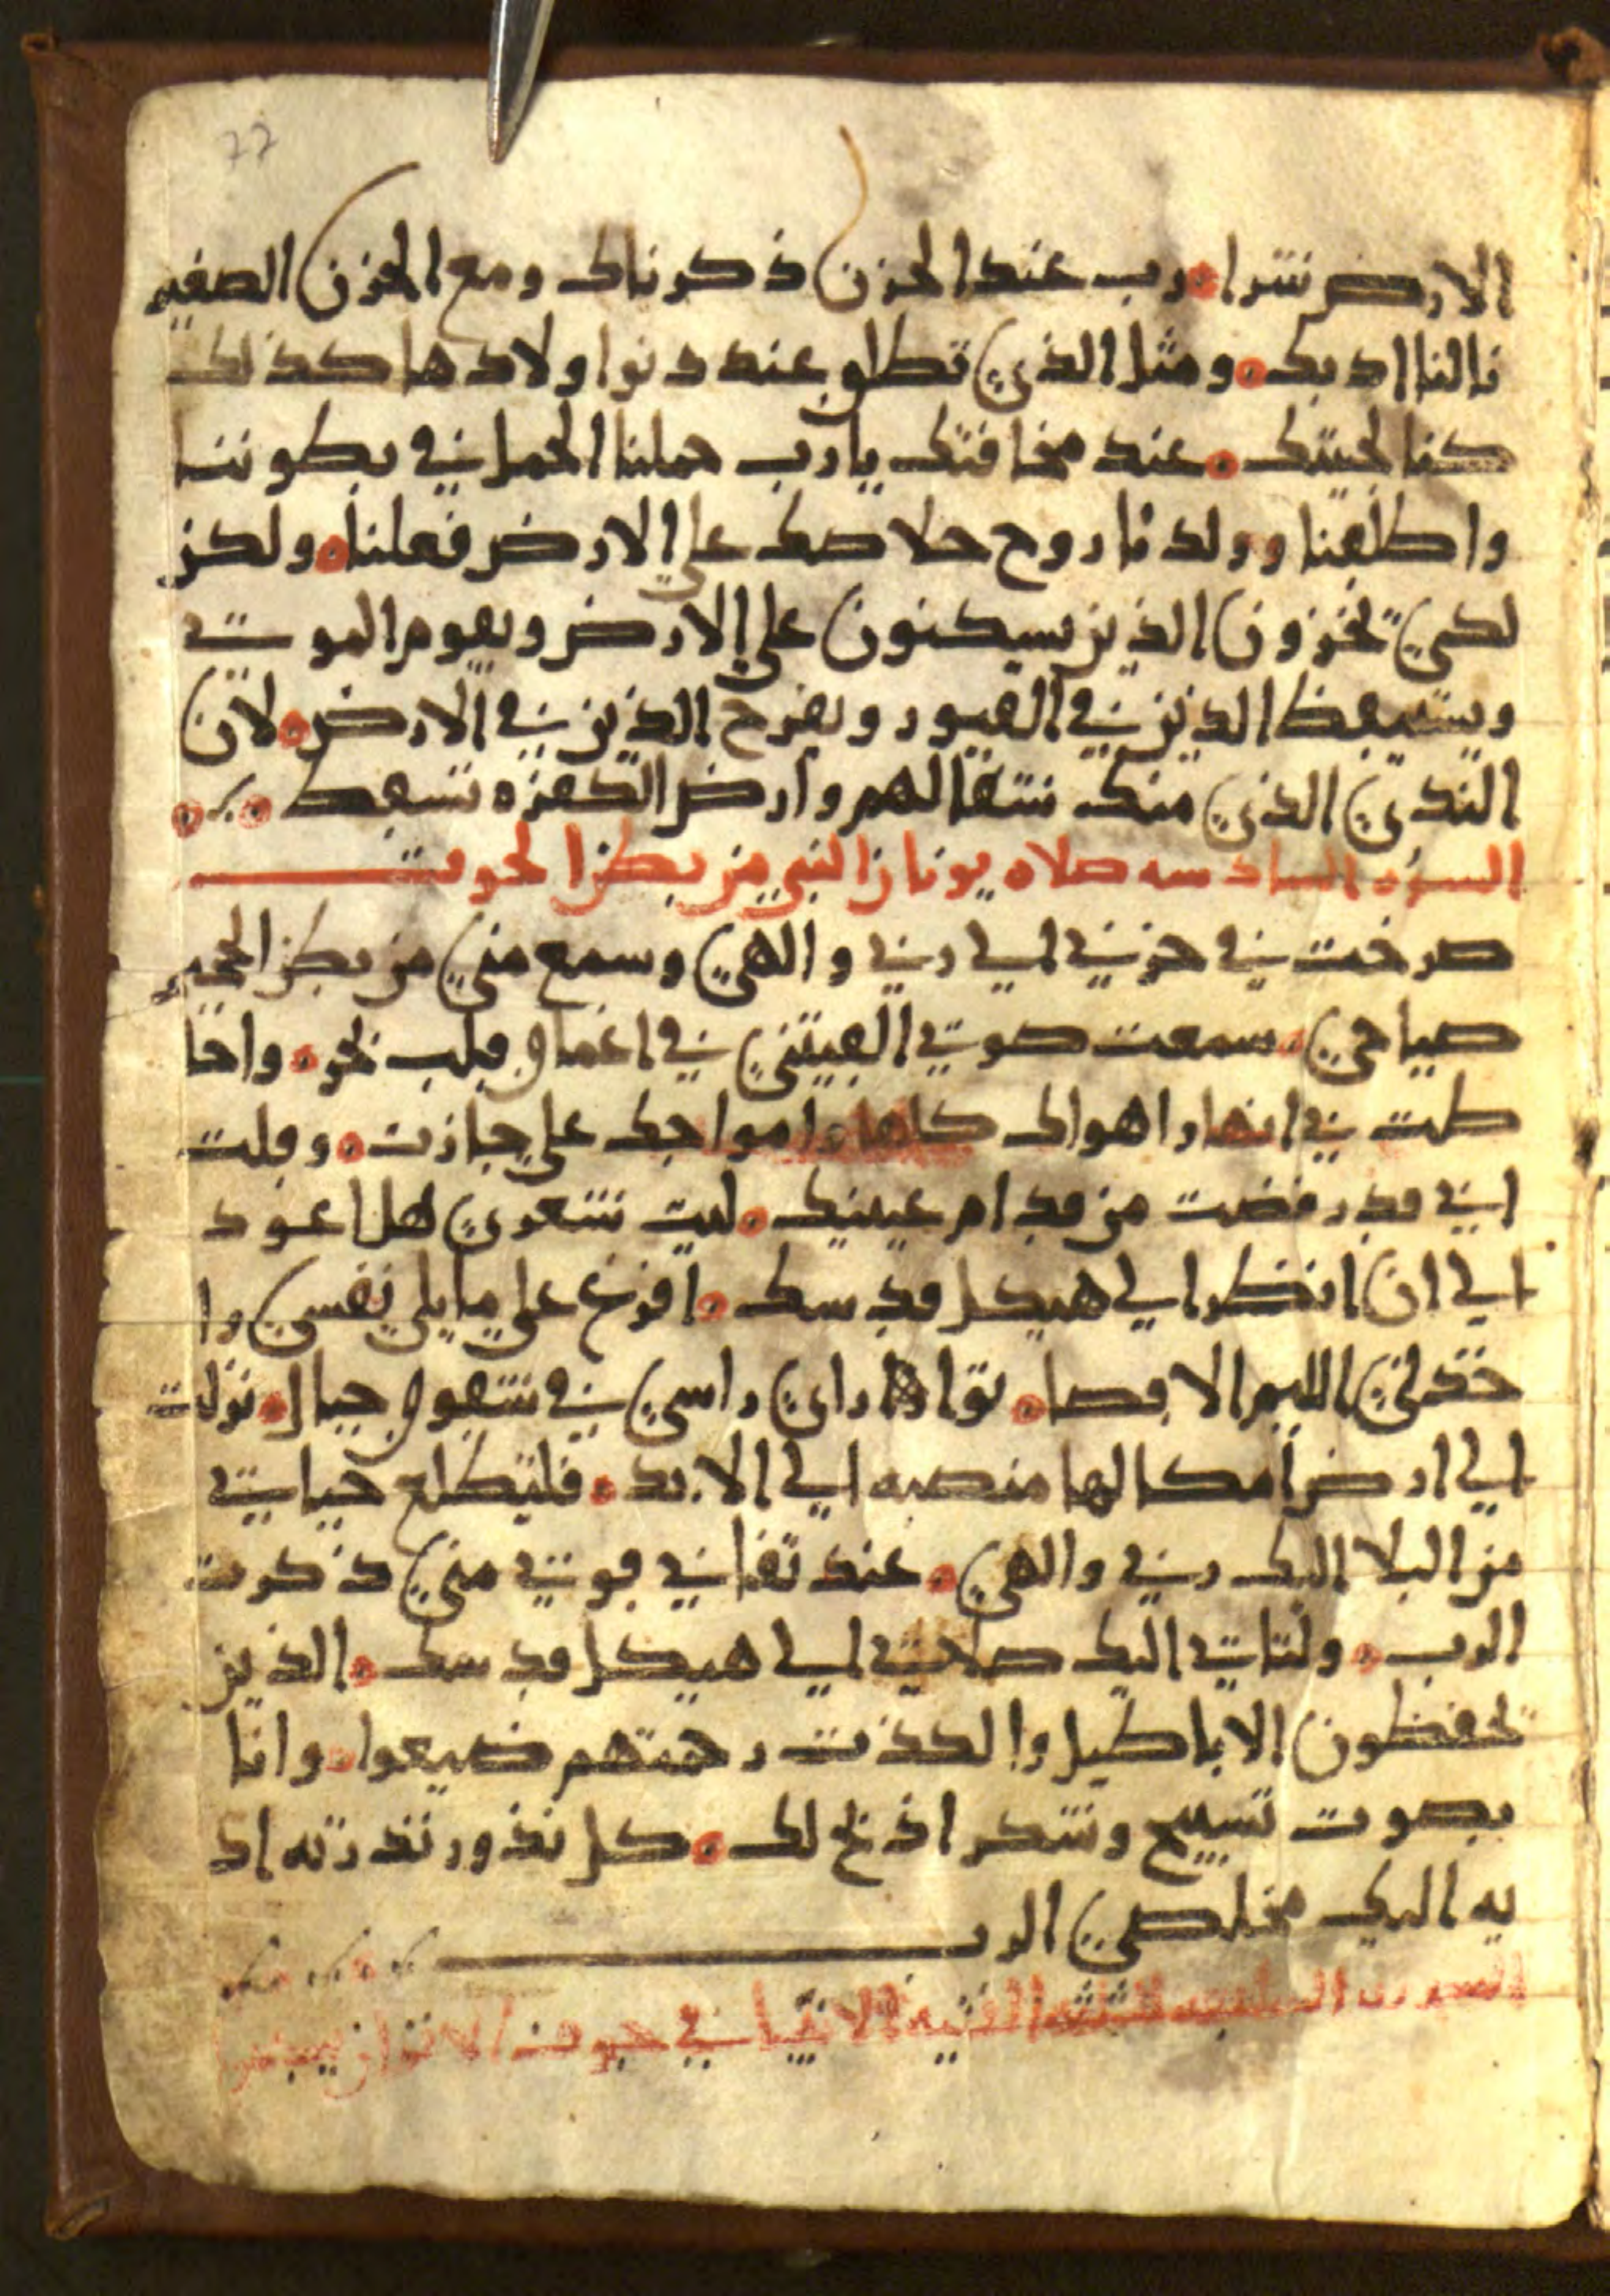 الارض شرا. رب عند الحزن ذكرناك ومع الحزن الصغير
نالنا ادبك. ومثل الذي تطلق عند دنوا ولادها كذلك
كنا لحبيبك. عند مخافتك يا رب حملنا الحمل في بطوننا
واطلقنا وولدنا روح خلاصك علي الارض فعلنا. ولكن
لكي تخزون الذين يسكنون علي الارض ويقوم الموت
ويستيقظ الذين في القبور ويفرح الذين في الارض. لان
الندي الذي منك شفا لهم وارض الكفره تسقط
السوره السادسه صلاه يونان النبي من بطن الحوت
صرخت في حزني الي ربي والهي وسمع مني من بطن الجحيم
صياحي. سمعت صوتي القيتني في اعماق قلب بحر. واحا
طت بي انهار اهوالك كلها وامواجك علي جازت. وقلت
اني قد رفضت من قدام عينيك. ليت شعري هل اعود
الي ان انظر الي هيكل قدسك. افرغ علي ما يلي نفسي وا
خذلني اليم الاقصا. توارا راسي في شقوق جبال. نزلت
الي ارض امكالها منصبه الي الابد. فلتطلع حياتي
من البلا اليك ربي والهي. عند تفاني قوتي مني ذكرت
الرب. ولتاتي اليك صلاتي الي هيكل قدسك. الذين
يحفظون الاباطيل والكذب رحمتهم ضيعوا. وانا
بصوت تسبيح وشكر اذبح لك. كل نذور نذرته اد
يه اليك مخلصي الرب
السوره السابعه الثلثه الفتيه الاتقيا في جوف الاتون